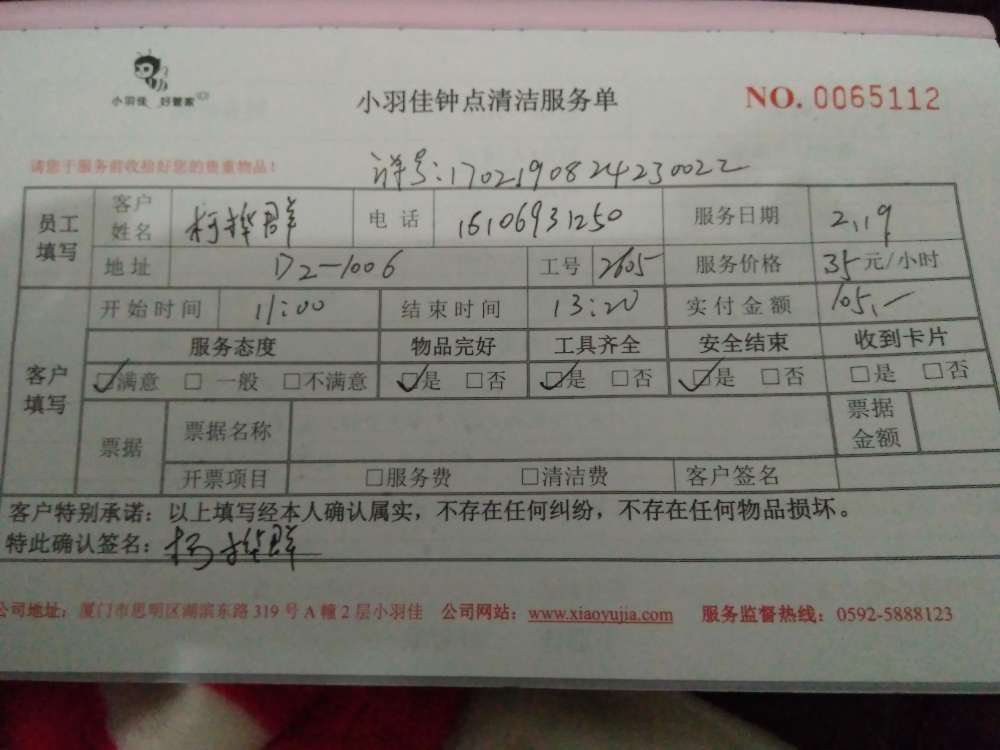 小羽佳 好管家
小羽佳钟点清洁服务单 NO. 0065112
请您于服务前收拾好您的贵重物品！
详号:1702190824230022
员工填写 客户姓名 柯桦群 电话 16106931250 服务日期 2,19
地址 D2-1006 工号 2605 服务价格 35元/小时
客户填写 开始时间 11:00 结束时间 13:20 实付金额 105,-
服务态度 物品完好 工具齐全 安全结束 收到卡片
☑满意 □一般 □不满意 ☑是 □否 ☑是 □否 ☑是 □否 □是 □否
票据 票据名称 票据金额
开票项目 □服务费 □清洁费 客户签名
客户特别承诺：以上填写经本人确认属实，不存在任何纠纷，不存在任何物品损坏。
特此确认签名：柯桦群
公司地址：厦门市思明区湖滨东路319号A幢2层小羽佳 公司网站：www.xiaoyujia.com 服务监督热线：0592-5888123